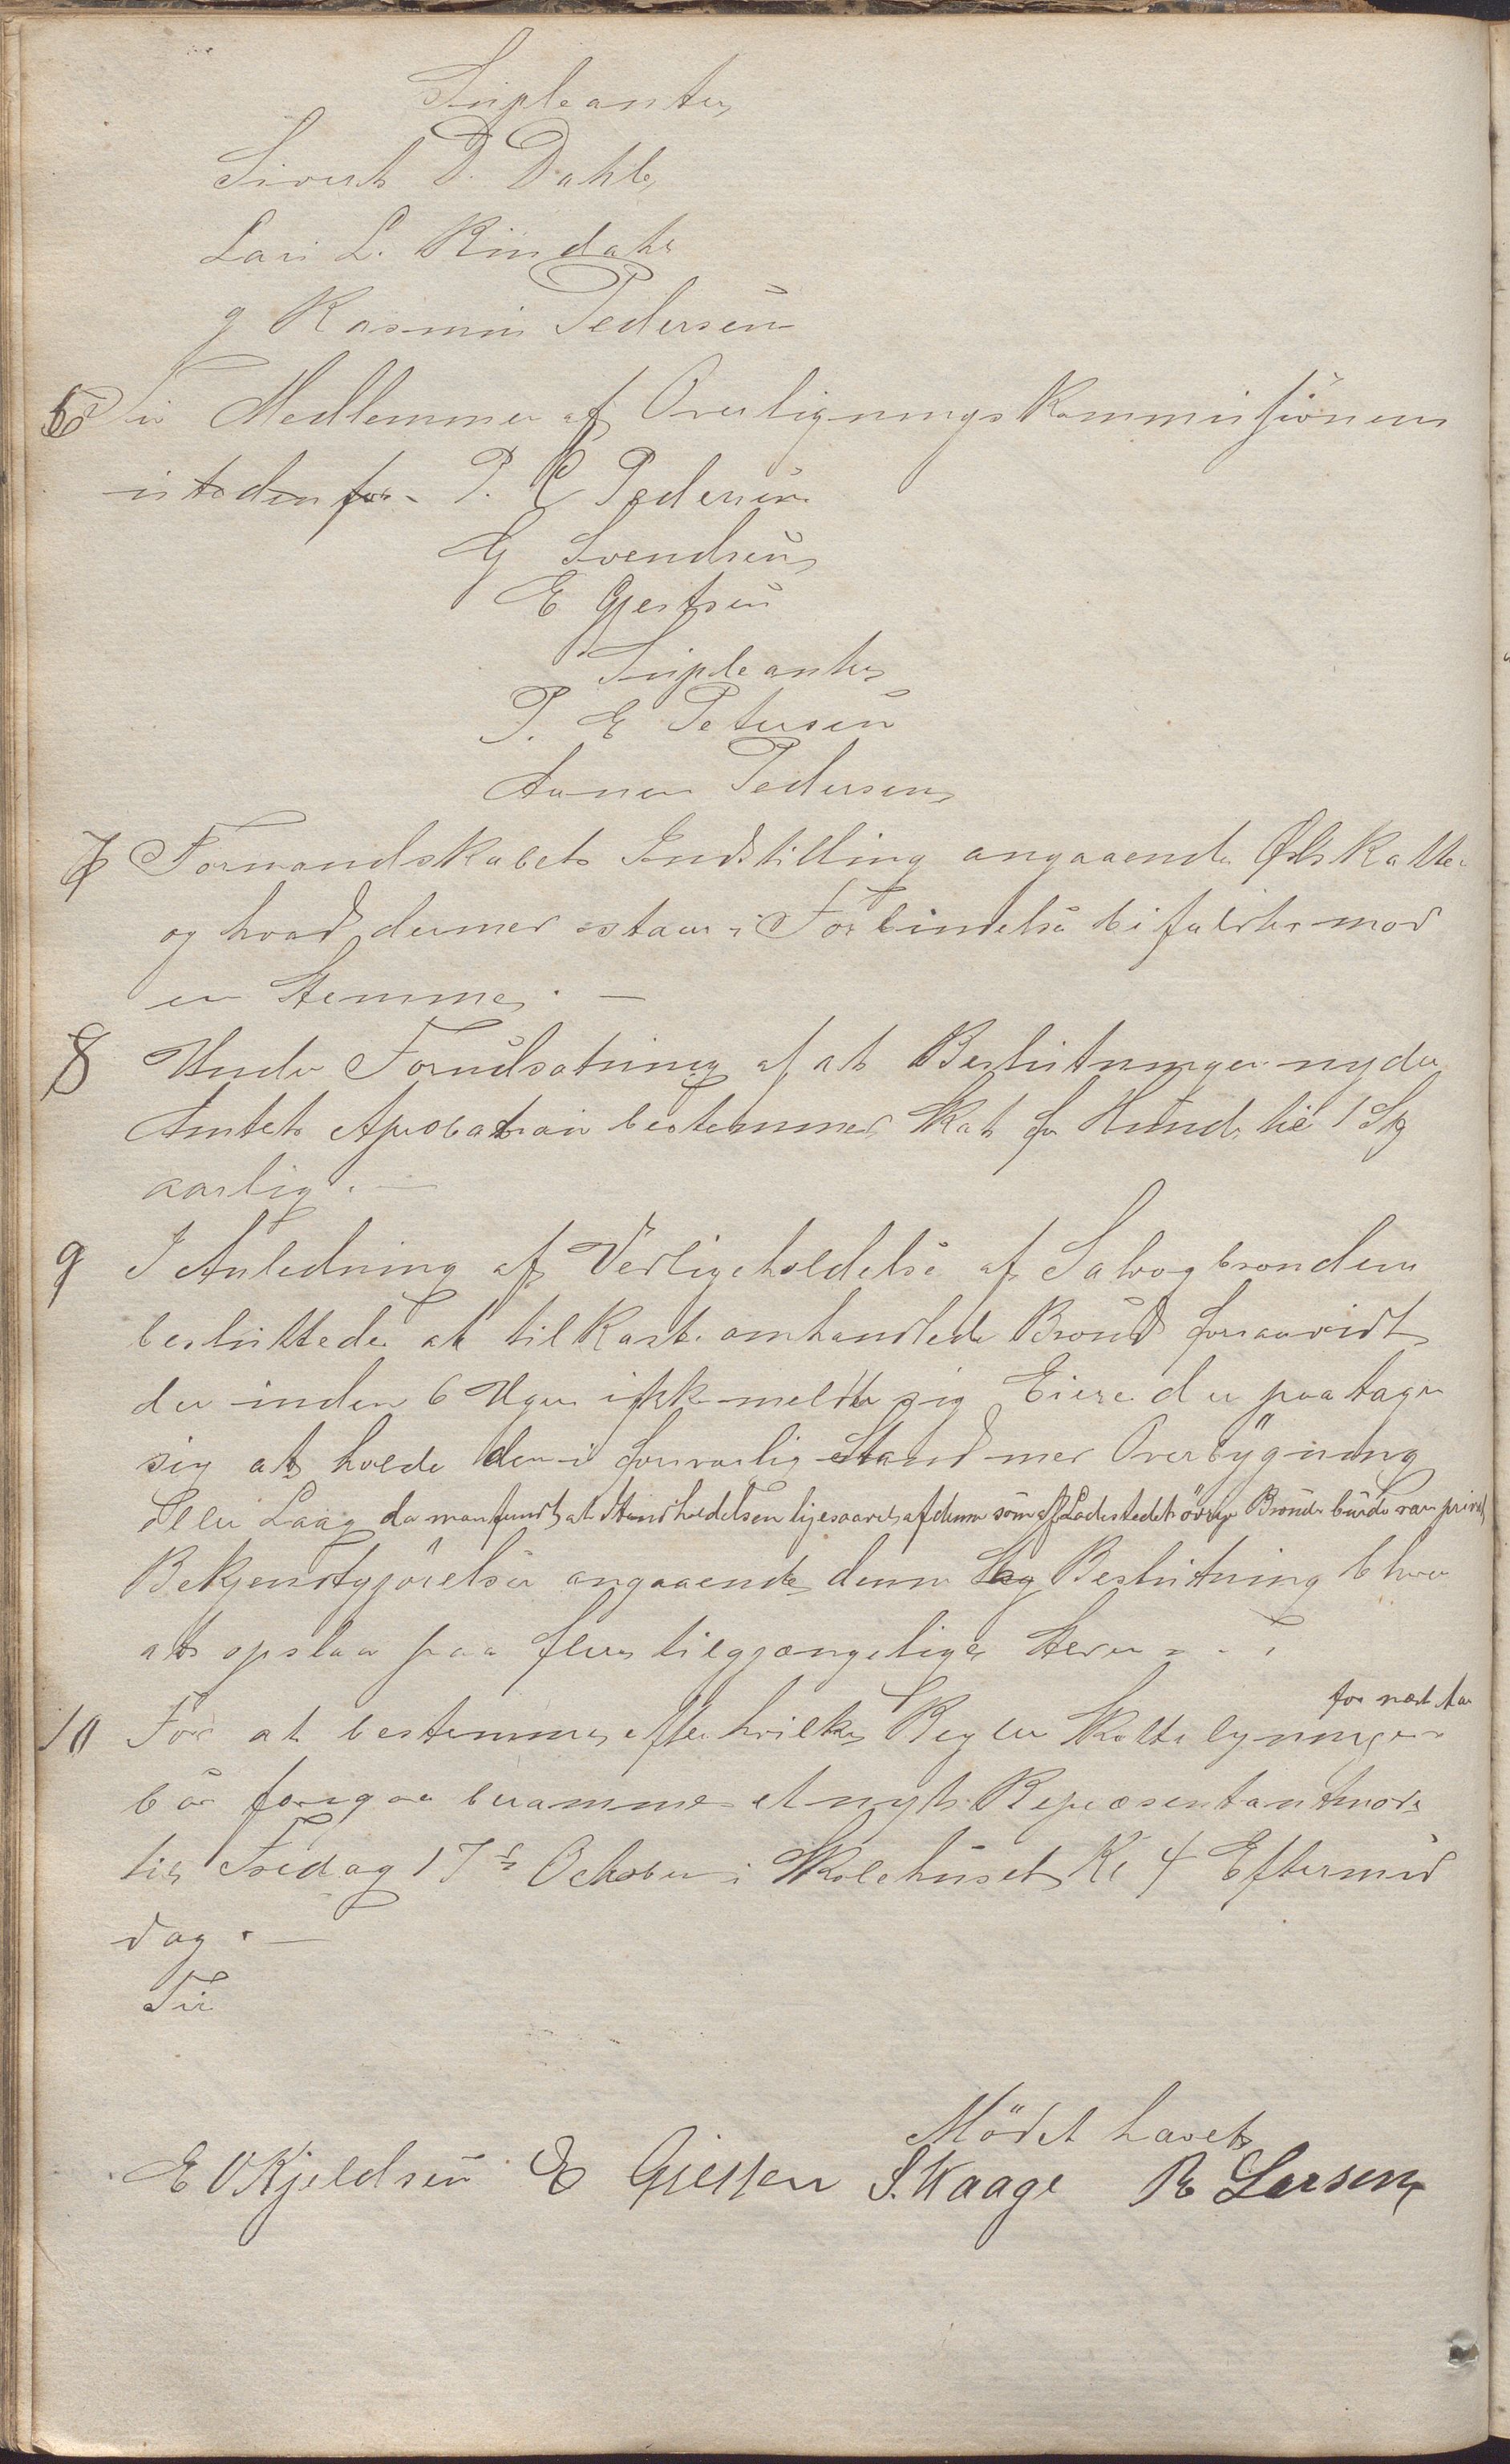 Supleanter
Sivert D. Dahle
Lars L. Rindahl
g Rasmus Pedersen
6 Til Medlemmer af Overligningskommissionen
istedenfor P. E Pedersen
G Svendsen
E Gjertsen
Supleanter
P. E Petersen
Aanen Pedersen
7 Formandskabets Indstilling angaaende Ølskatten
og hvad dermed staar i Forbindelse bifaldtes mod
en Stemme. —
8 Under Forudsætning af at Beslutningen nyder
Amtets Aprobation bestemmes Skat for Hunde til 1 Sp
aarlig. —
9 I Anledning af Vedligeholdelse af brønden
besluttedes at tilkaste omhandlede Brønd forsaavidt
der inden 6 Uger ikke melder sig Eiere der paatager
sig at holde den i forsvarlig Stand med Overbygning
eller Laag da man fandt at Istandholdelsen ligesaavel af denne som af Ladestedets øvrige Brønde burde være privat
Bekjendtgjørelse angaaende denne Beslutning bliver
at opslaa paa flere tilgjængelige Steder. —
for næste Aar
10 For at bestemme efter hvilke Regler Skatteligningen
bør foregaa berammes et nyt Repræsentantmøde
til Fredag 17de October i Skolehuset Kl 4 Eftermid
dag. —
Til
Mødet hævet
E O Kjeldsen E Gjertsen S. Kaage R Larsen